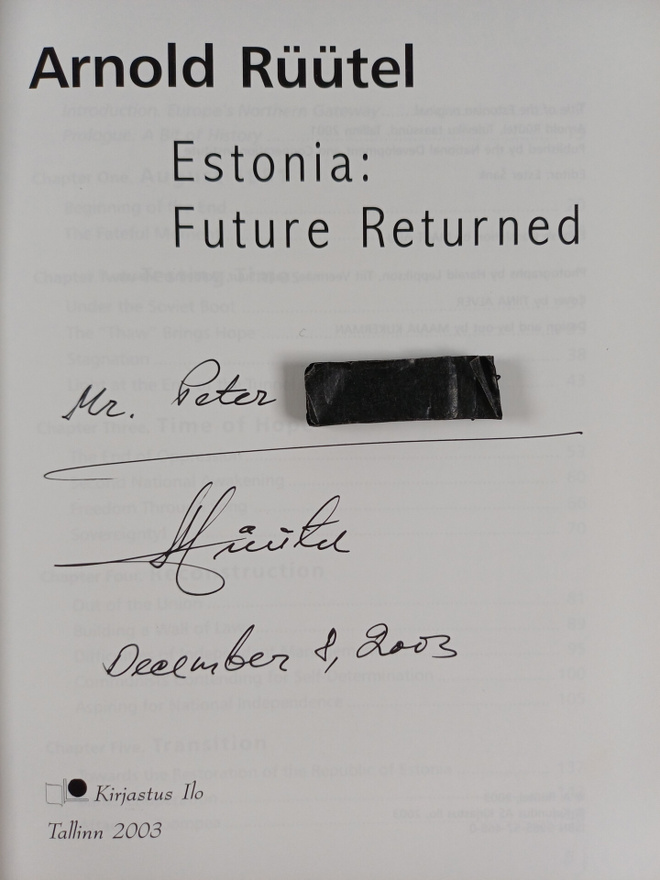 Arnold Rüütel
Estonia:
Future Returned
Mr. Peter
ARüütel
December 8, 2003
Kirjastus Ilo
Tallinn 2003